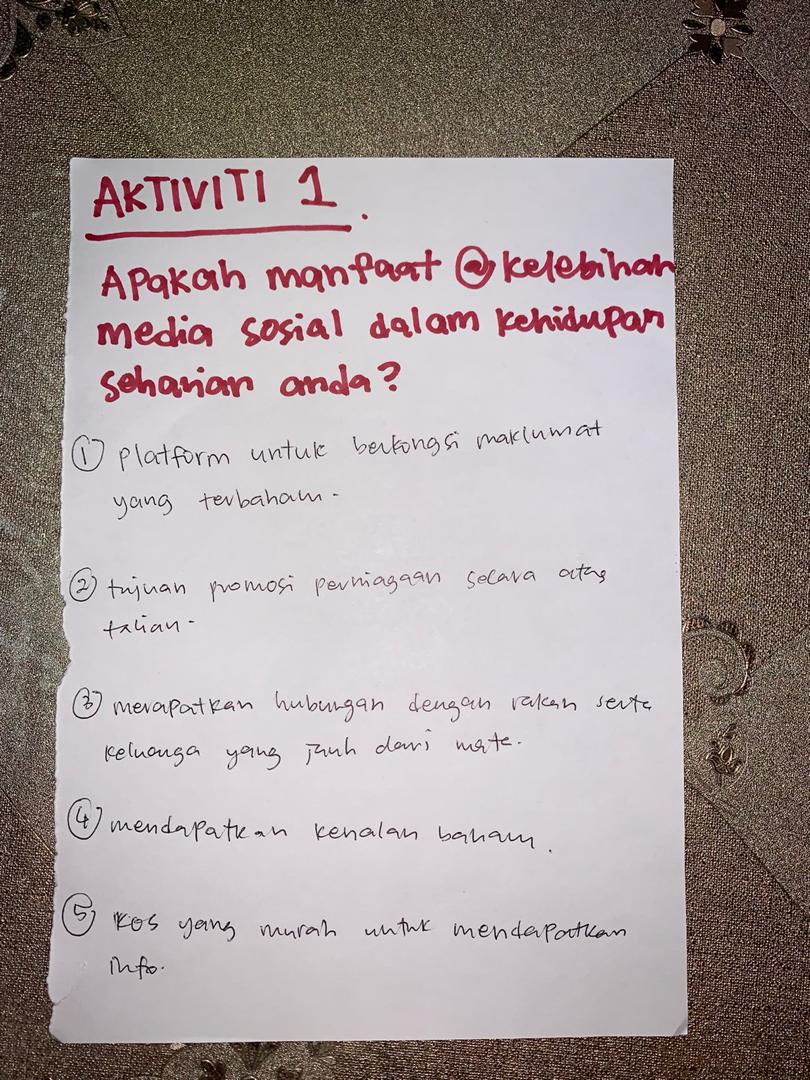 AKTIVITI 1.
Apakah manfaat @ kelebihan
media sosial dalam kehidupan
seharian anda?
① platform untuk berkongsi maklumat
yang terbaharu.
② tujuan promosi perniagaan secara atas
talian.
③ merapatkan hubungan dengan rakan serta
keluarga yang jauh dari mata.
④ mendapatkan kenalan baharu.
⑤ kos yang murah untuk mendapatkan
info.